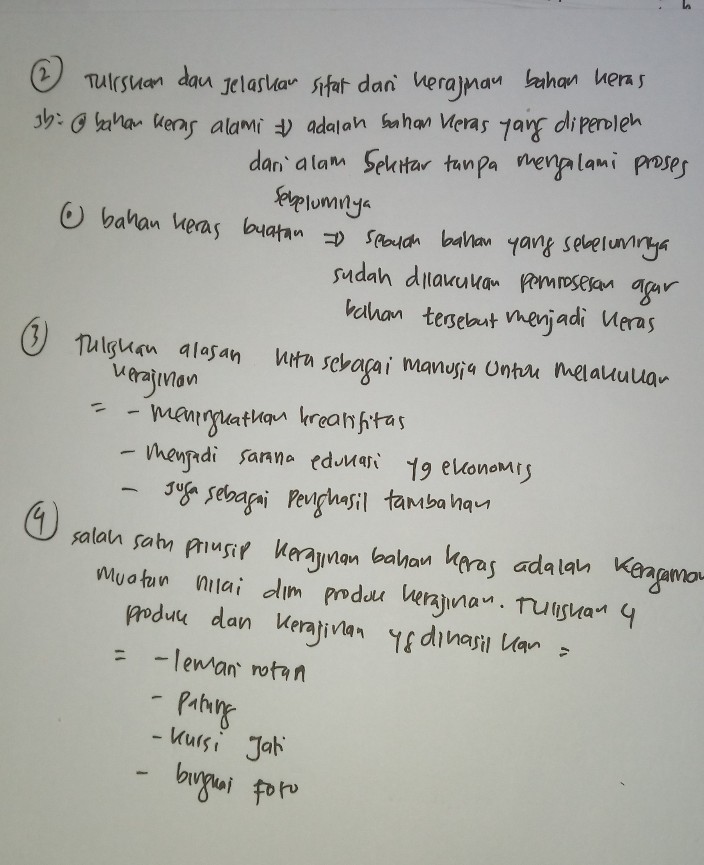 ② Tuliskan dan jelaskan sifat dari kerajinan bahan keras
Jb: ⊙ bahan keras alami => adalah bahan keras yang diperoleh
dari alam sekitar tanpa mengalami proses
sebelumnya
⊙ bahan keras buatan => sebuah bahan yang sebelumnya
sudah dilakukan pemrosesan agar
bahan tersebut menjadi keras
③ Tuliskan alasan kita sebagai manusia untuk melakukan
kerajinan
= - meningkatkan kreatifitas
- menjadi sarana edukasi yg ekonomis
- Juga sebagai penghasil tambahan
④ salah satu prinsip kerajinan bahan keras adalah keragaman
muatan nilai dlm produk kerajinan. Tuliskan 4
produk dan kerajinan yg dihasilkan =
= - lemari rotan
- Patung
- kursi Jati
- bingkai foto